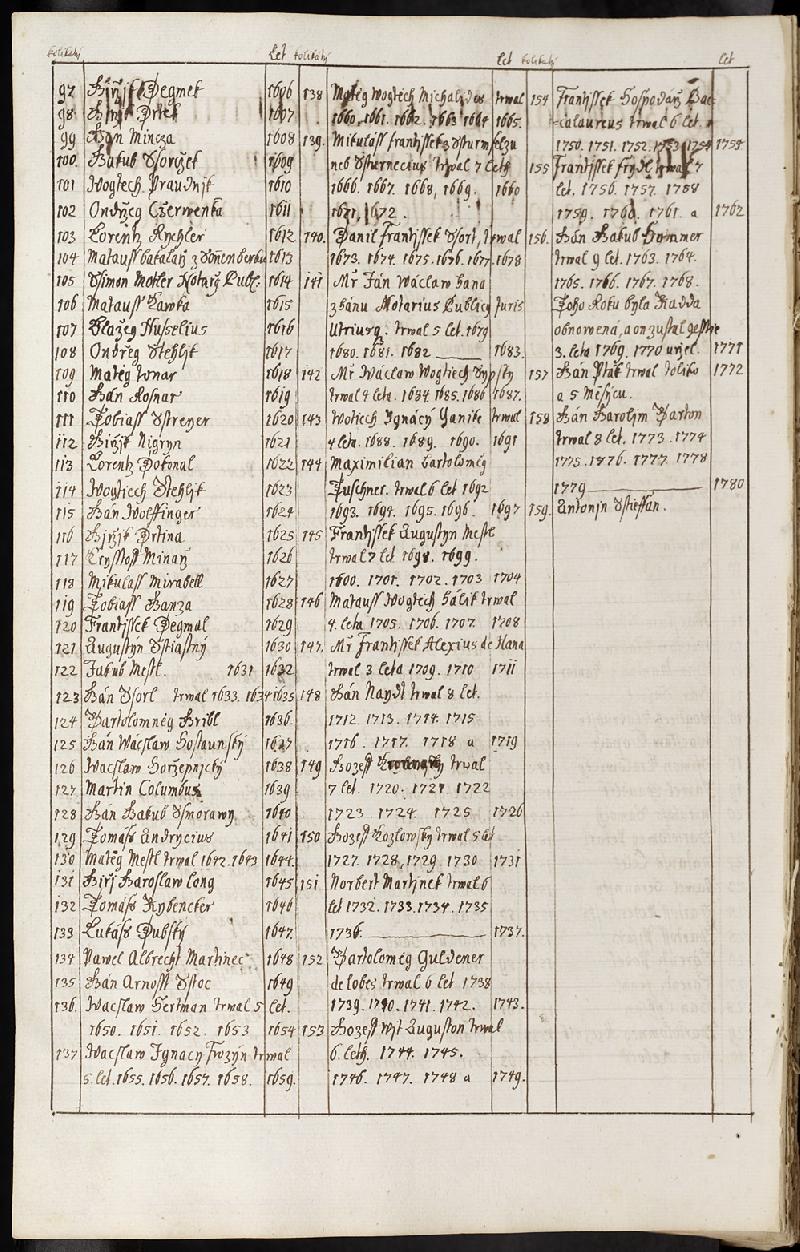 kolikátý
Let
97 Giržjk Pegmel 1606
98 Giržjk Prtek 1607
99 Ján Mincza 1608
100. Jakub Storžek 1609
101 Wogtiech Praudnjk 1610
102 Ondržeg Czerwenka 1611
103 Lorentz Rychler 1612
104 Matauss bakalarž z Sonenberku 1613
105 Ssimon Motler Notarž Publ: 1614
106 Matauss Lawka 1615
107 Blažeg Huselius 1616
108 Ondržeg Stehljk 1617
109 Matěg konar 1618
110 Ján Rosnar 1619
111 Tobiass Streyer 1620
112 Giržjk Nigryn 1621
113 Lorentz Dokonal 1622
114 Wogtiech Stehljk 1623
115 Ján Wolffinger 1624
116 Giržjk Prtina 1625
117 Crysstoff Minarž 1626
118 Mikulass Mirabell 1627
119 Tobiass Hanza 1628
120 Frantissek Pegmal 1629
121 Augustyn Stiastný 1630
122 Jakub Mestl. 1631 1632
123 Ján Ssorl trwal 1633. 1634 1635
124 Bartolomněg Bribl 1636.
125 Ján Wáclaw Hostaunský 1637
126 Waclaw Horžepnický 1638
127 Martin Columbus 1639
128 Ján Jakub Smorawy 1640
129 Tomáss Andrycius 1641
130 Matěg Mestl trwal 1642. 1643 1644
131 Girži Jaroslaw Cong 1645
132 Tomáss Rybencker 1646
133 Lukáss Dubský 1647.
134 Pawel Albrecht Martinec 1648
135 Ján Arnosst Sstoc 1649
136. Waclaw Hertman trwal 5 let.
1650. 1651. 1652. 1653 1654
137 Waclaw Ignacy Frozýn trwal
5 let. 1655. 1656. 1657. 1658. 1659.
kolikátý
Let
138 Matěg Wogtiech Michalides trwal
1660. 1661. 1662. 1663 1664 1665.
139. Mikulass Frantissek z Sturmfelzu
neb Sturnecius trwal 7 leth
1666. 1667. 1668, 1669. 1660
1671, 1672.
140. Danil Frantissek Ssorl, trwal
1673. 1674. 1675. 1676. 1677. 1678
141 Mr Ján Wáclaw Hana
z Hánu Notarius Publicg Juris
Utriusq. trwal 5 let. 1679
1680. 1681. 1682 ___ 1683.
142 Mr Wáclaw Wogtiech Sypsty
trwal 4 leta. 1684. 1685. 1686 1687.
143 Wotiech Ignácy Ganike trwal
4 leta. 1688. 1689. 1690. 1691
144 Maximilian Bartoloměg
Tuschner. trwal 6 let 1692
1693. 1694. 1695. 1696. 1697
145 Frantissek Augustyn Mestl
trwal 7 let 1698. 1699.
1600. 1701. 1702. 1703 1704
146 Matauss Wogtiech Gálik trwal
4. leta 1705. 1706. 1707. 1708
147. Mr Frantissek Alexius de Hana
trwal 3 leta 1709. 1710 1711
148 Ján Haydl trwal 8 let.
1712 1713. 1714. 1715
1716. 1717. 1718 a 1719
149 Jozeff trwal
7 let. 1720. 1721 1722
1723 1724. 1725 1726
150 Jozeff Kozlowský trwal 5 let
1727. 1728, 1729. 1730 1731
151 Norbert Martjnek trwal 6
let 1732. 1733. 1734. 1735
1736. ___ 1737.
152 Bartoloměg Guldener
de Lobes trwal 6 let 1738
1739. 1740. 1741. 1742. 1743.
153 Jozeff Wjt Auguston trwal
6 leth. 1744. 1745.
1746. 1747. 1748 a 1749.
kolikátý
Let
154 Frantissek Hospodarž Bac-
calaureus trwal 6 let. a
1750. 1751. 1752. 1753 1754 1755
155 Frantissek Frydl trwal 7
let. 1756. 1757. 1758
1759. 1760. 1761. a 1762
156. Ján Jakub Hummer
trwal 9 let. 1763. 1764.
1765. 1766. 1767. 1768.
Toho Roku byla Radda
obnowená, a on zustal gesstie
3. leta 1769. 1770 1771
157 Ján Ptak trwal toliko 1772
a 5 Měsýcu.
158 Ján Karolym Parton
trwal 8 let. 1773. 1774
1775. 1776. 1777. 1778
1779 ___ 1780
159. Antonjn Sstieffan.